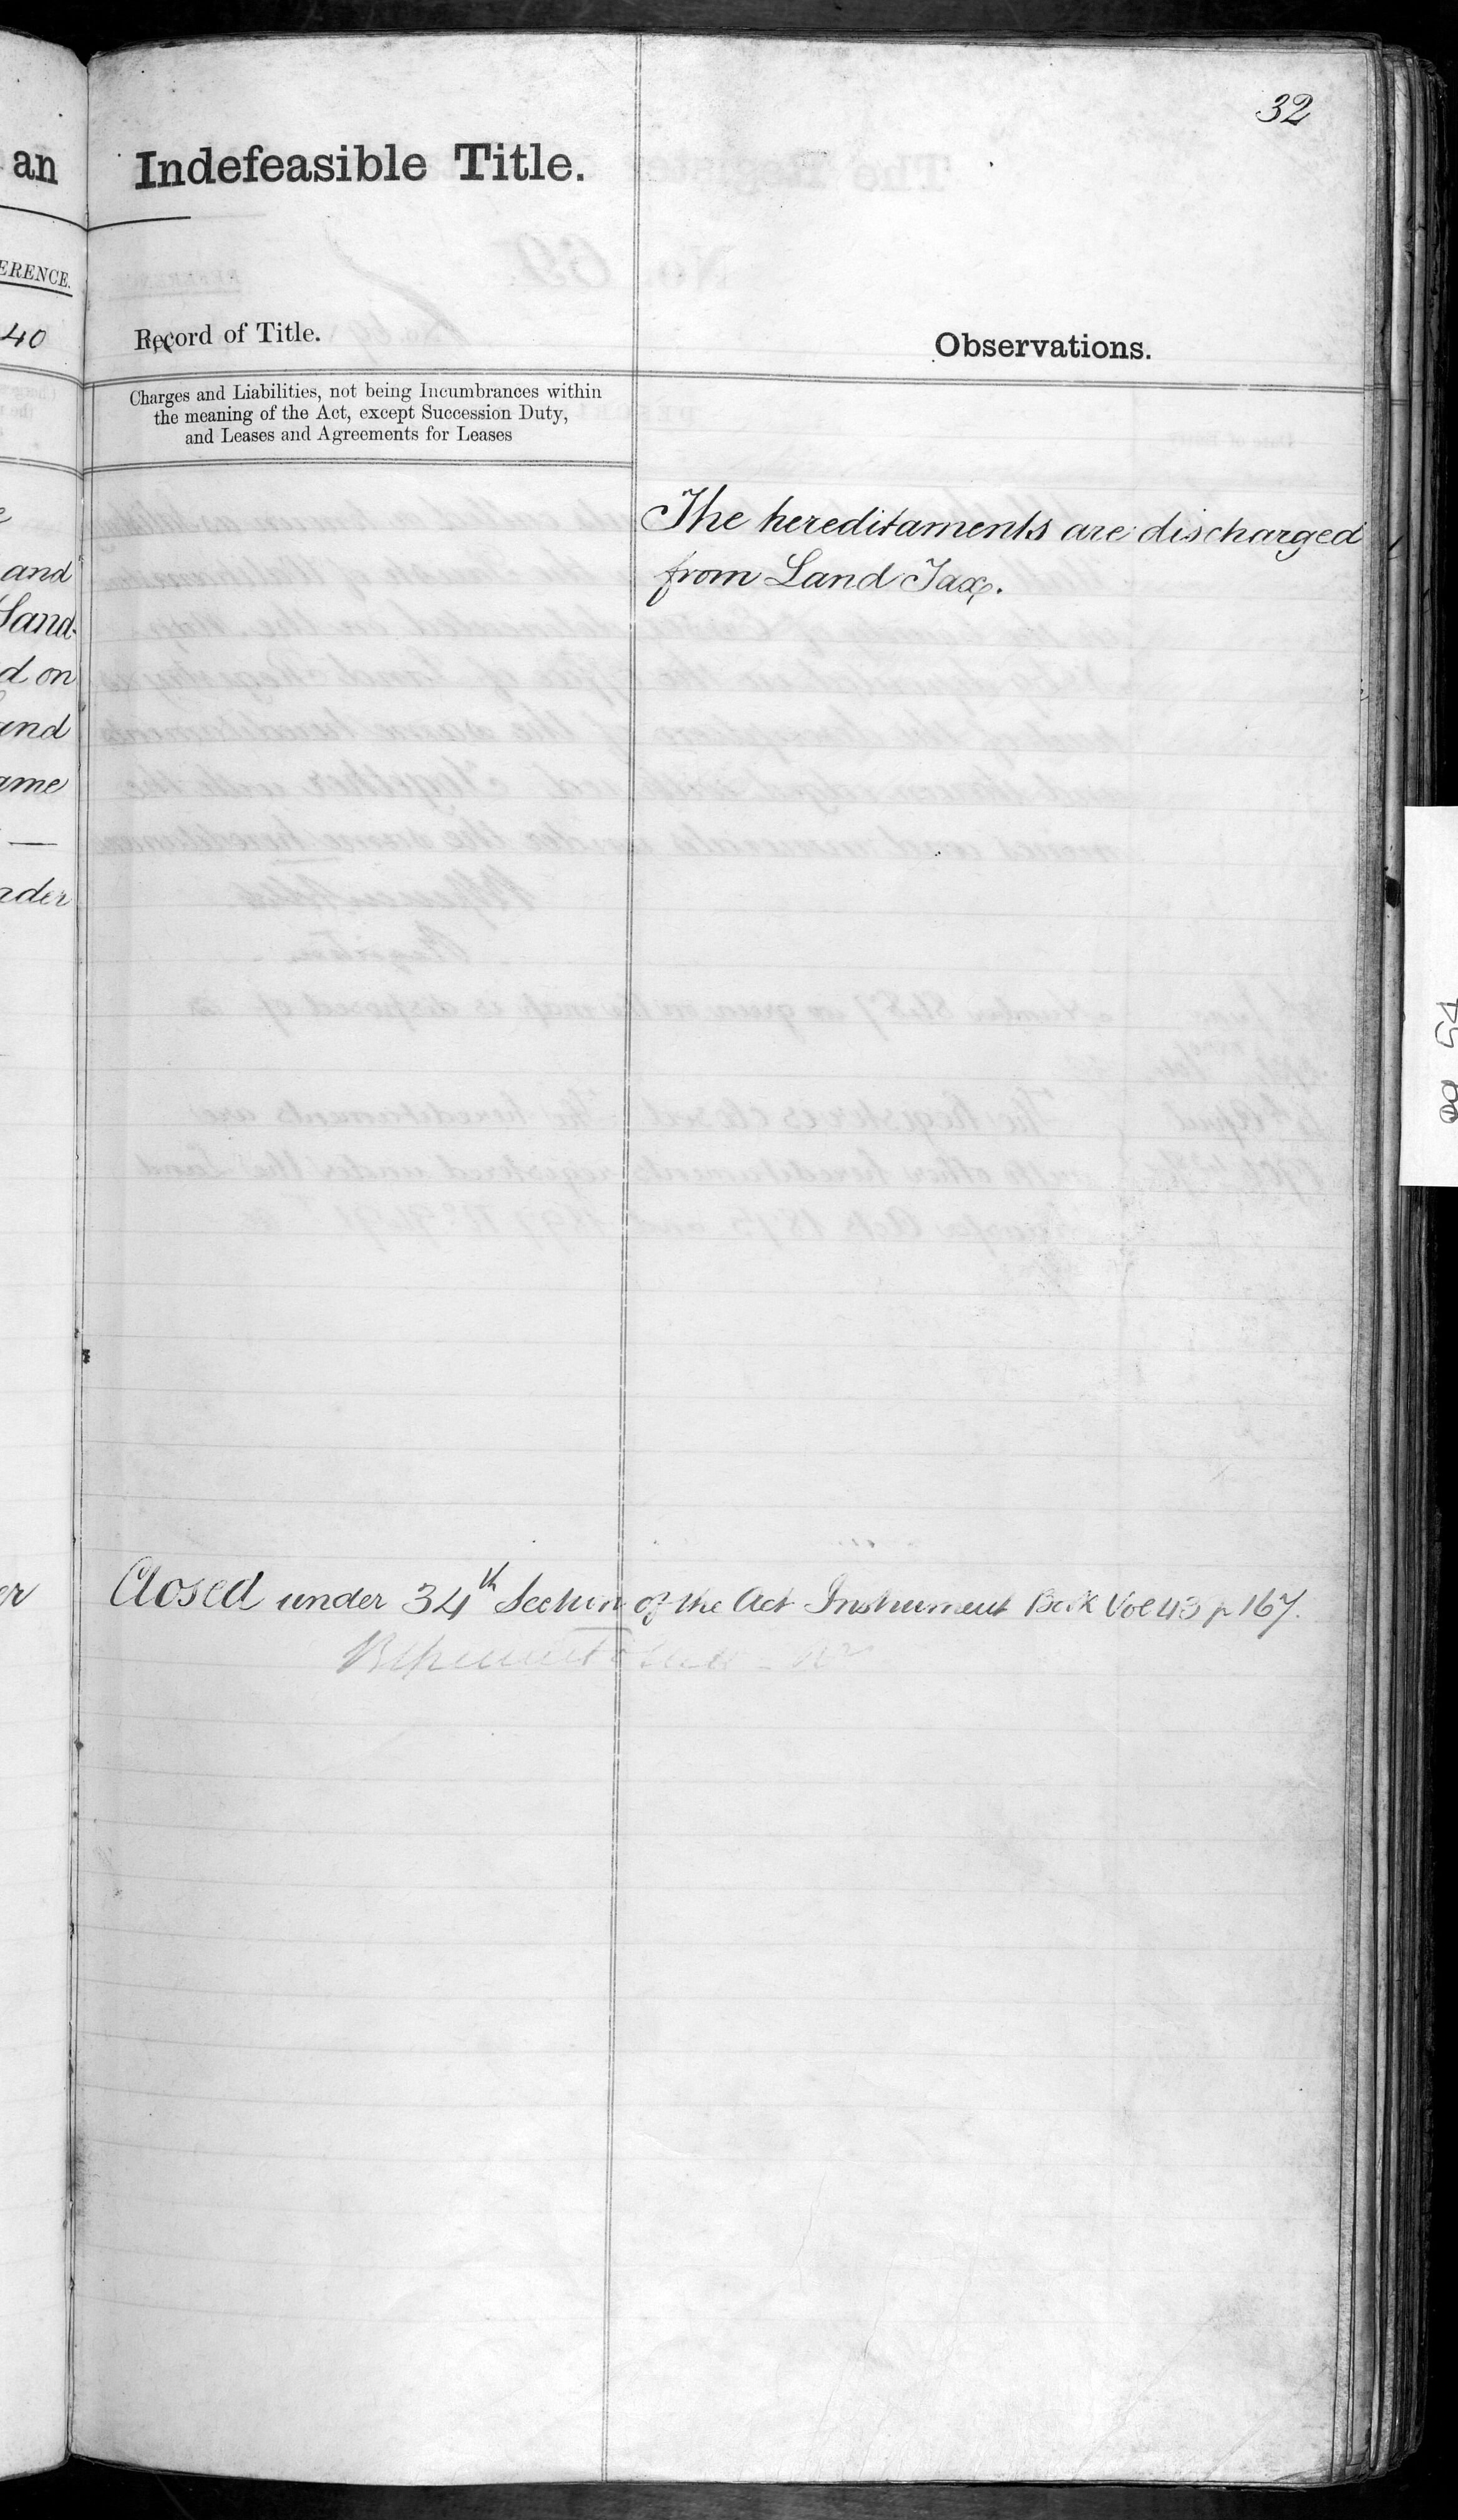 32
an
Indefeasible Title.
ERENCE.
40
Record of Title.
Observations.
Charges and Liabilities, not being Incumbrances within
the meaning of the Act, except Succession Duty,
and Leases and Agreements for Leases
The hereditaments are discharged
from Land Tax.
and
Land
d on
and
ame
nder
er
Closed under 34th Section of the Act Instrument Book Vol 43 p 167.